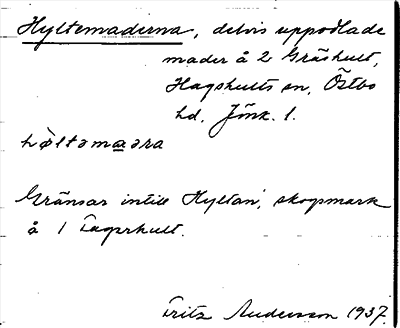 Hyltemaderna, delvis uppodlade
mader å 2 Gräshult,
Hagshults sn, Östbo
hd, Jönk. l.
hò̀ltəmaəra
Gränsar intill Hyltan, skogsmark
å 1 Fagerhult.
Fritz Andersson 1937.